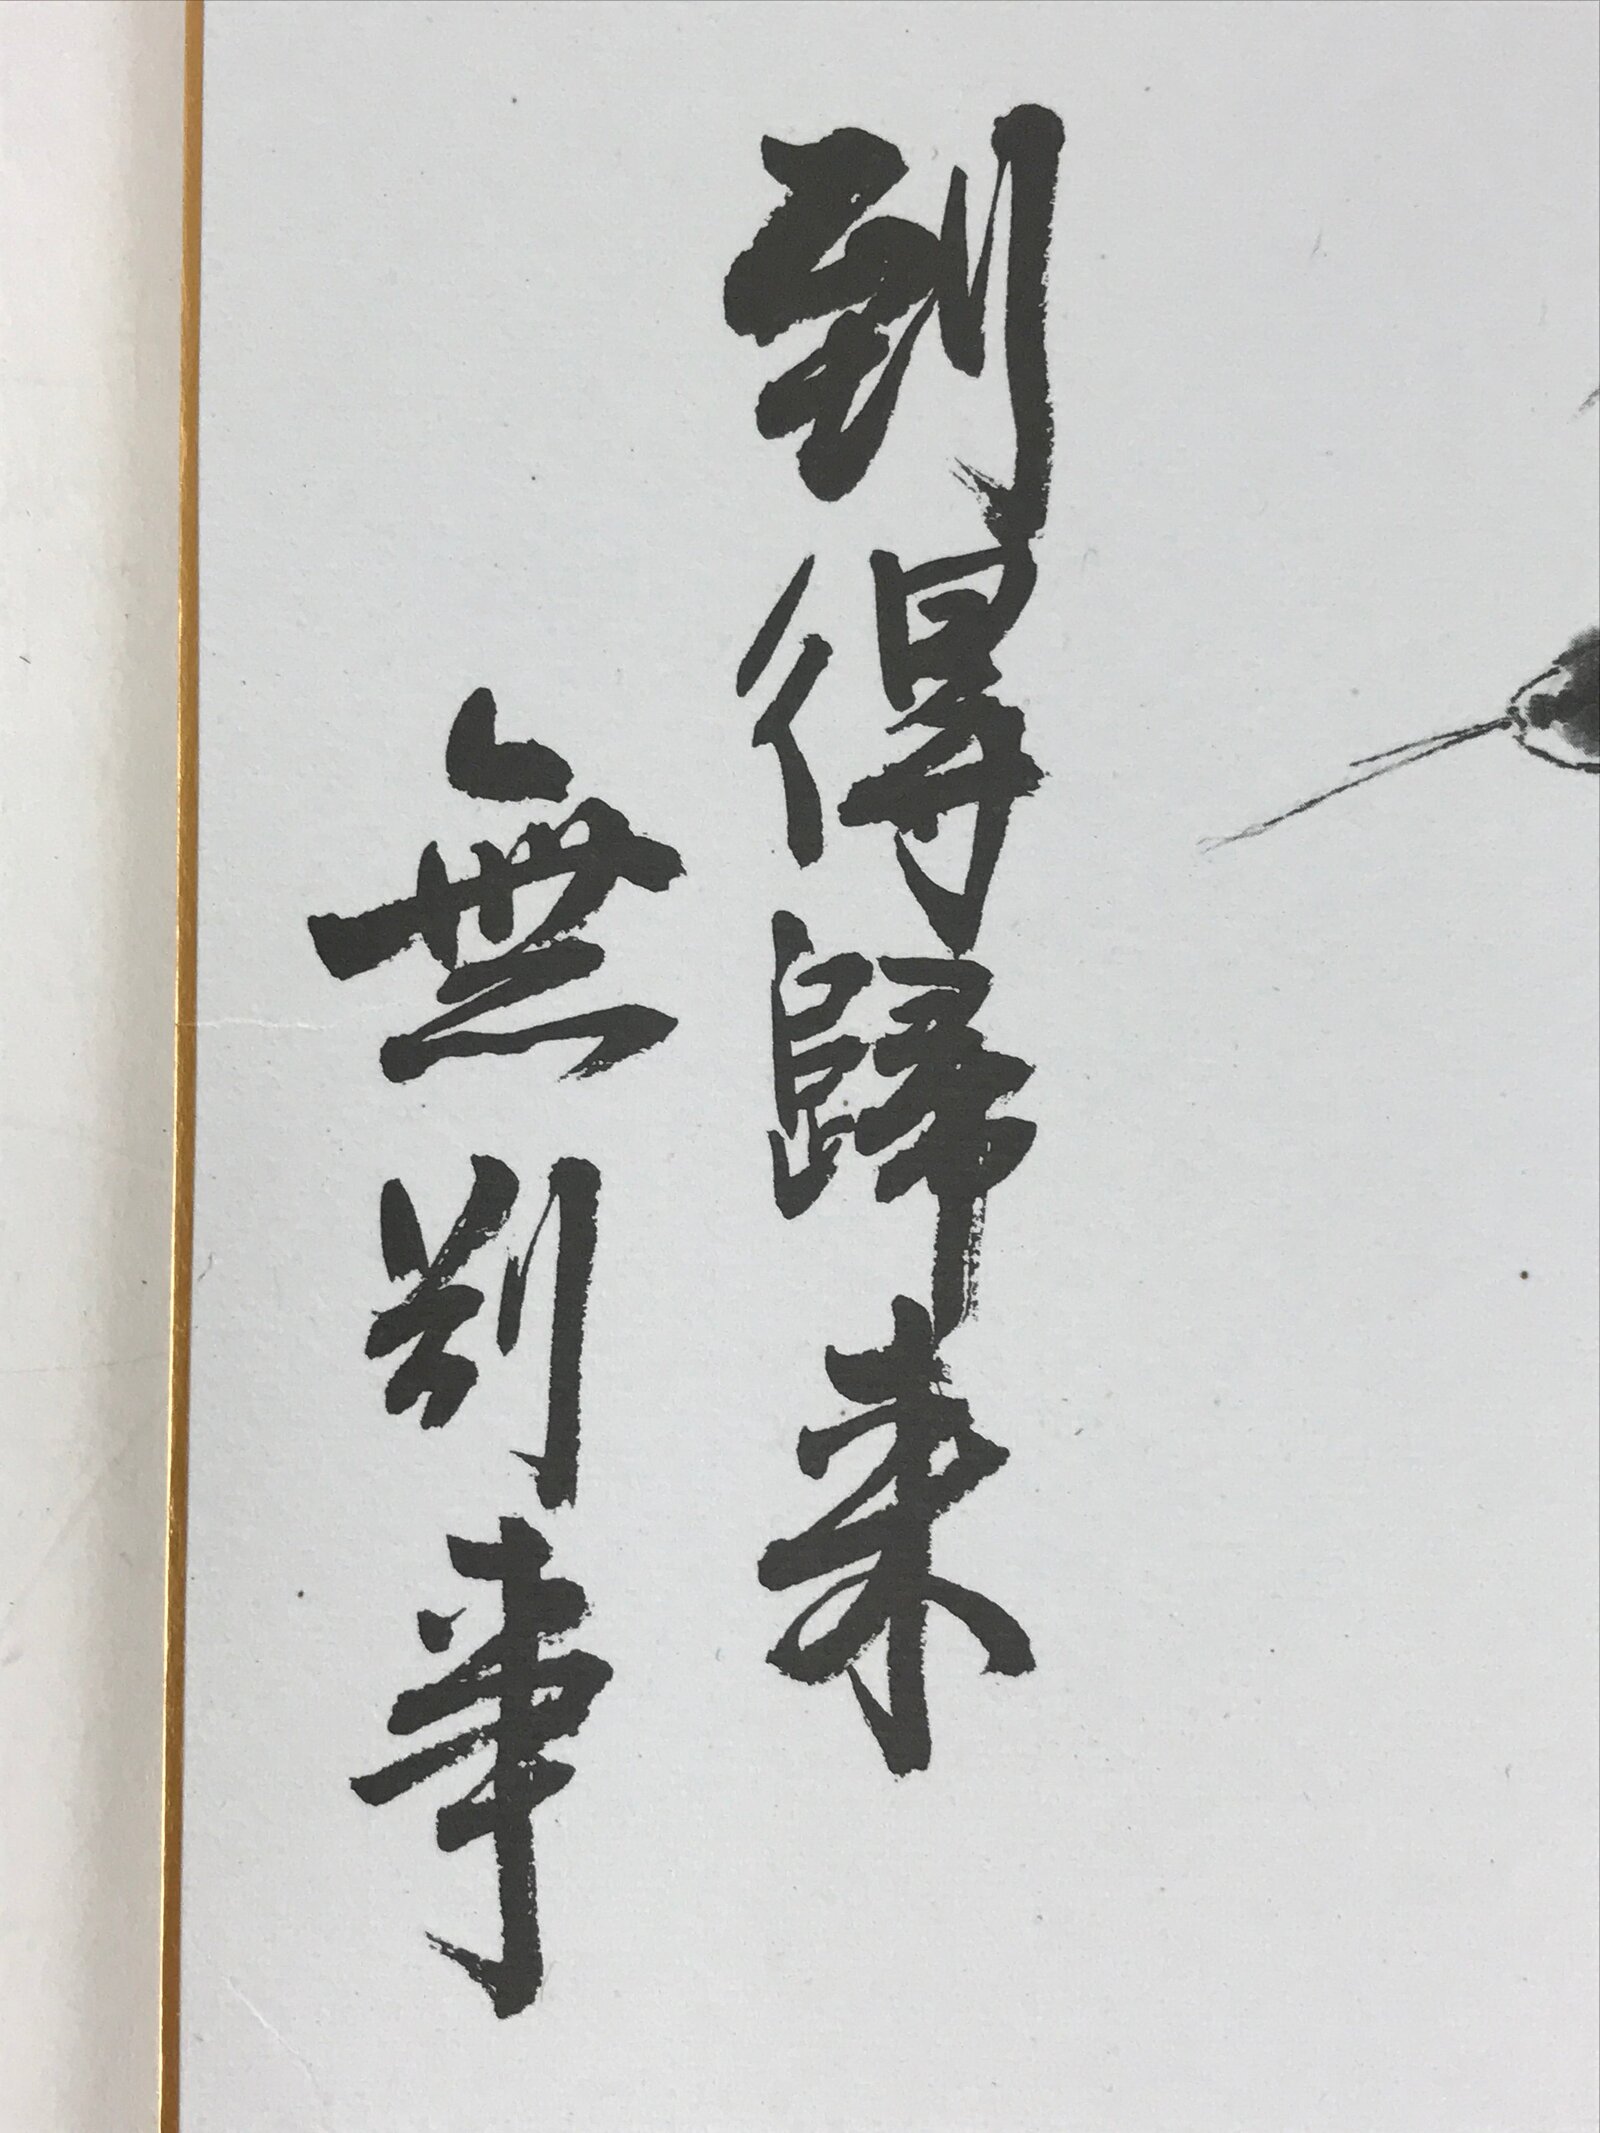 到得歸来
無別事